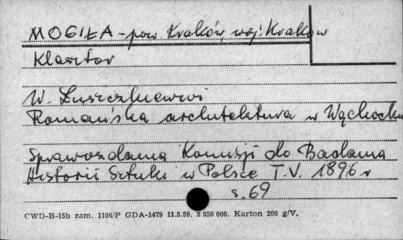 MOGIŁA - pow. Kraków, woj. Kraków
Klasztor
W. Łuszczkiewicz
Romańska architektura w Wąchocku
Sprawozdania Komisji do Badania
Historii Sztuki w Polsce T. V. 1896 r
s. 69
CWD-B-15b zam. 1106/P GDA-1479 11.5.59. 2 550 000. Karton 200 g/V.